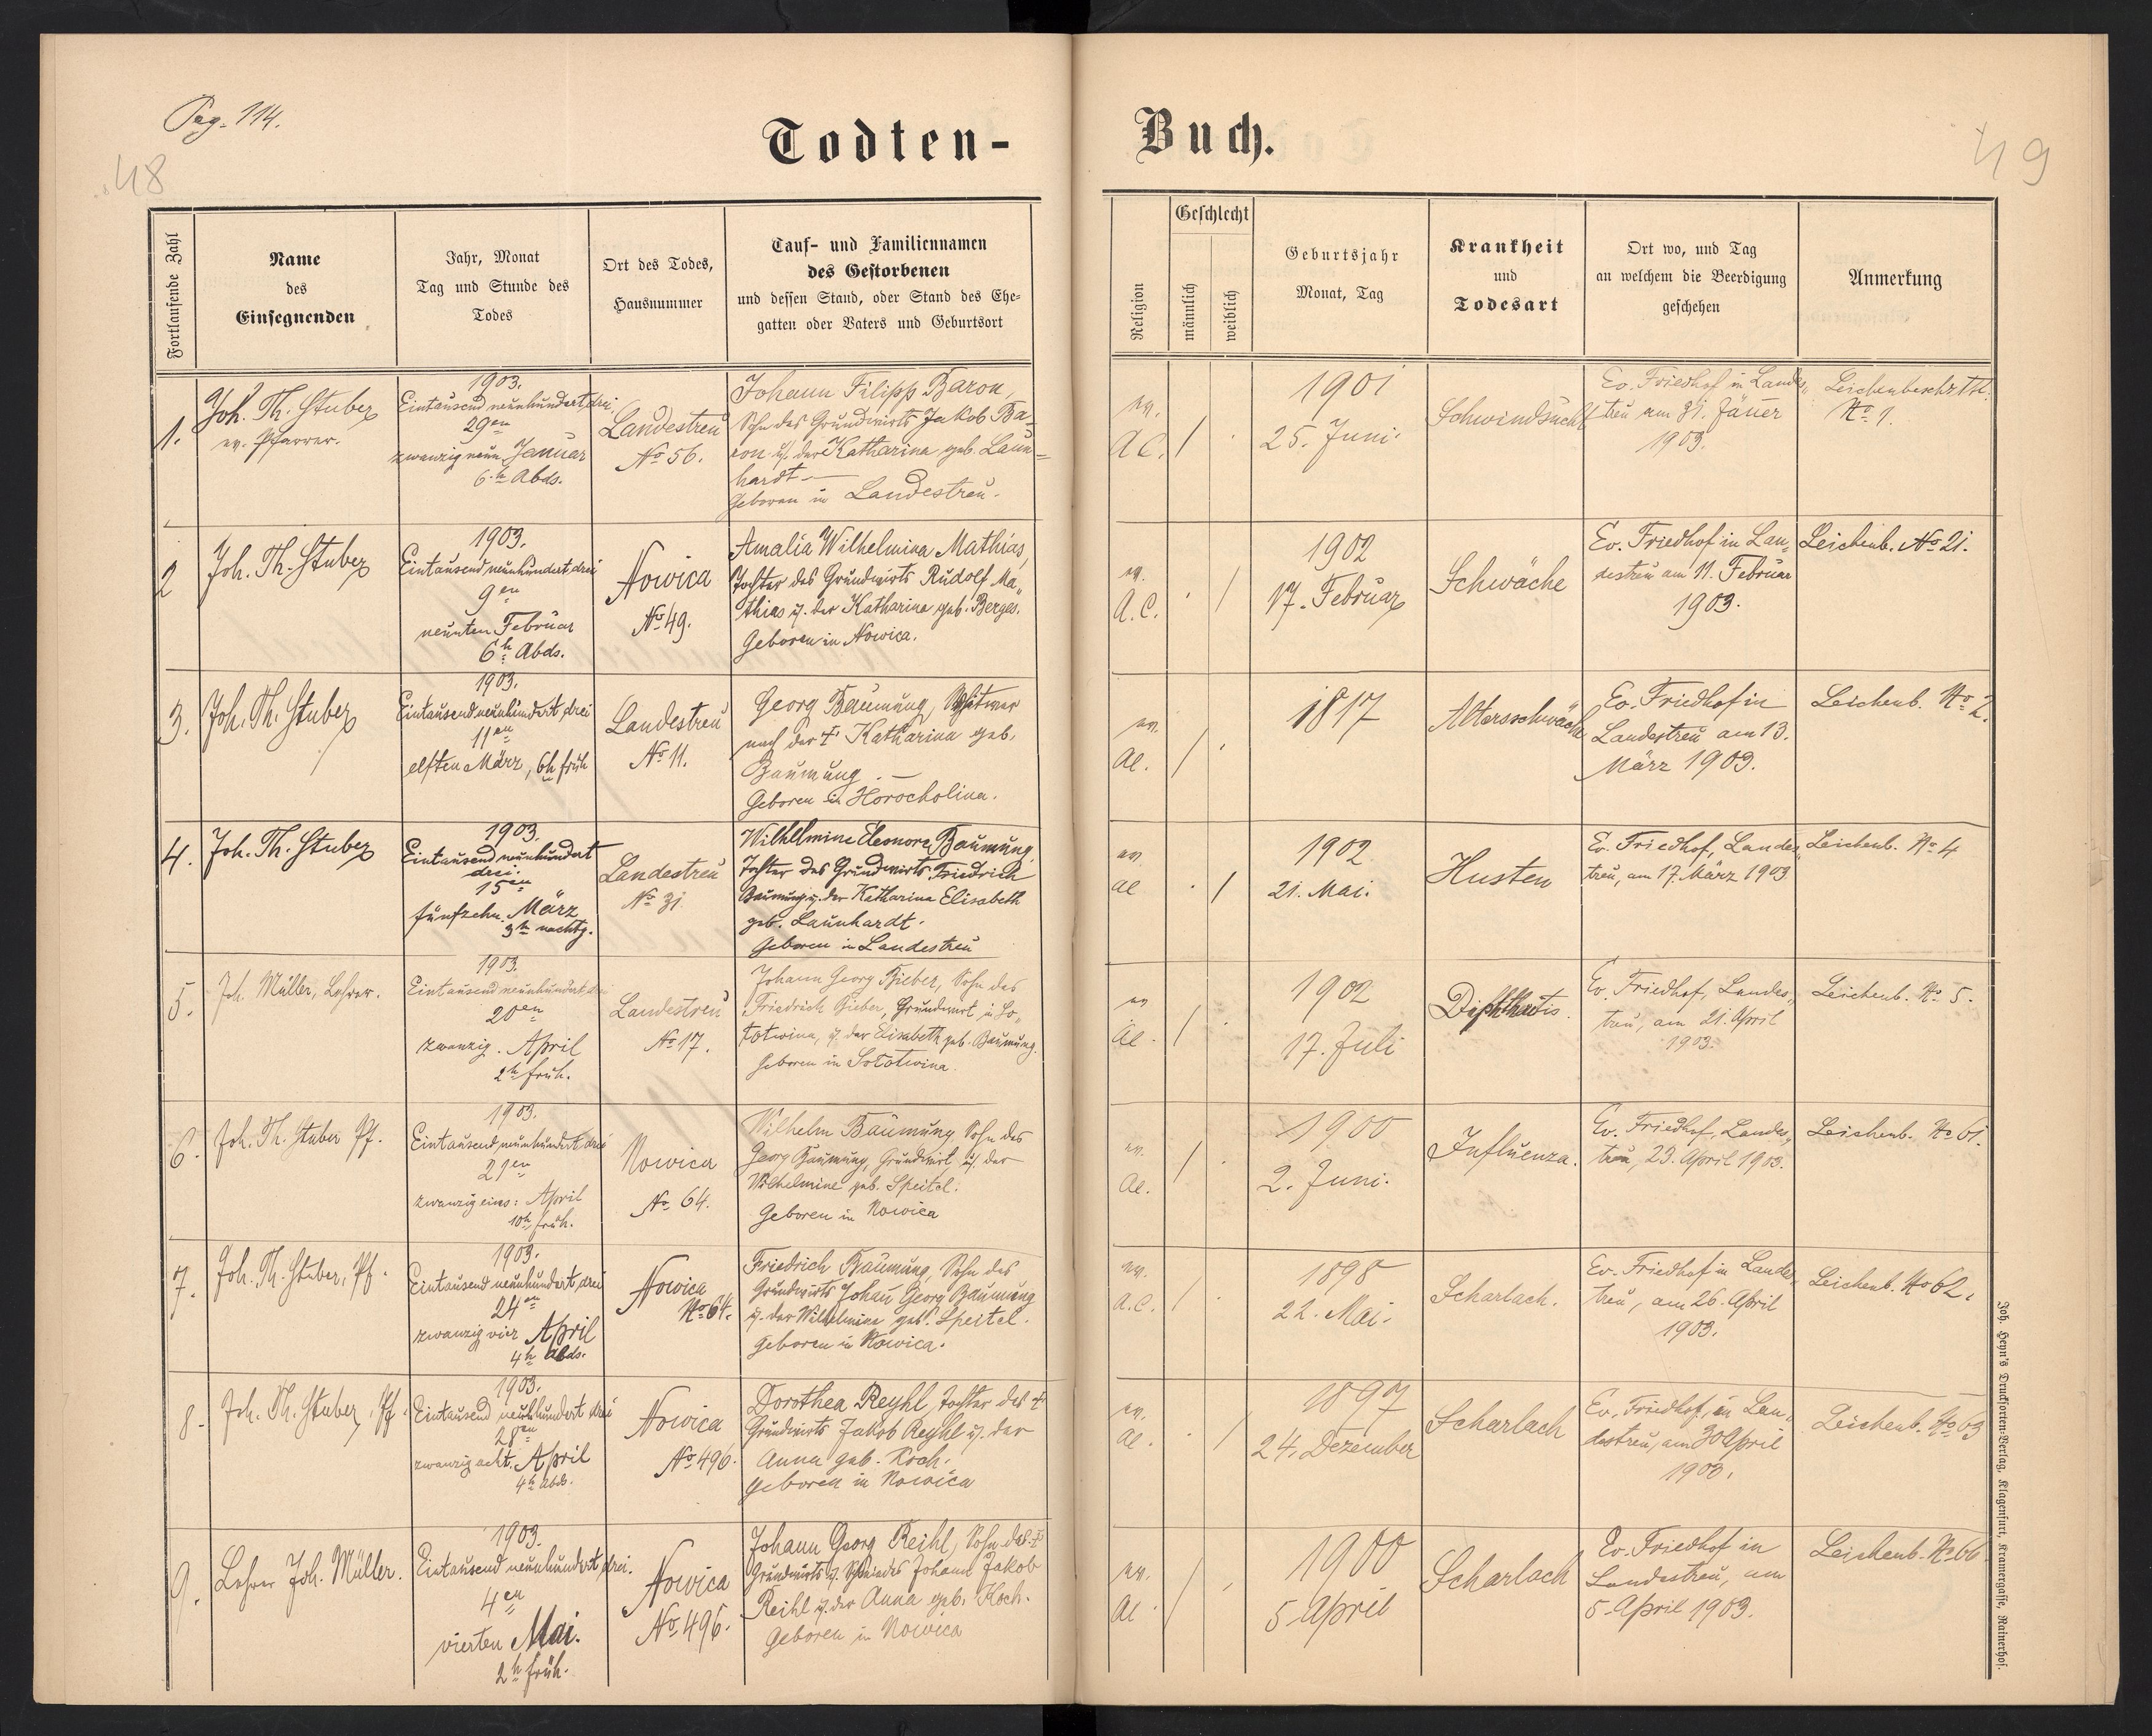 Pag. 114.
48
49
Todten-Buch.
Fortlaufende Zahl
Name
des
Einsegnenden
Jahr, Monat
Tag und Stunde des
Todes
Ort des Todes,
Hausnummer
Tauf- und Familiennamen
des Gestorbenen
und dessen Stand, oder Stand des Ehe-
gatten oder Vaters und Geburtsort
Religion
Geschlecht
männlich
weiblich
Geburtsjahr
Monat, Tag
Krankheit
und
Todesart
Ort wo, und Tag
an welchem die Beerdigung
geschehen
Anmerkung
1.
Joh. Th. Stuber
ev. Pfarrer.
1903.
Eintausend neunhundert drei
29en
zwanzig neun Januar
6h Abds.
Landestreu
No 56.
Johann Filipp Baron,
Sohn des Grundwirts Jakob Ba-
ron u. der Katharina geb. Laun=
hardt —
Geboren in Landestreu.
ev.
A.C.
/
1901
25. Juni.
Schwindsucht
Ev. Friedhof in Landes„
treu am 31. Jänner
1903.
No 1.
2
Joh. Th. Stuber
1903.
Eintausend neunhundert drei
9en
neunten Februar
6h Abds.
Nowica
No 49.
Amalia Wilhelmina Mathias,
Tochter des Grundwirts Rudolf Ma„
thias u. der Katharina geb. Berges.
Geboren in Nowica.
ev.
A.C.
/
1902
17. Februar
Schwäche
Ev. Friedhof in Lan„
destreu am 11. Februar
1903.
Leichenb. No 21.
3.
Joh. Th. Stuber
1903.
Eintausend neunhundert drei
11en
elften März, 6h früh
Landestreu
No 11.
Georg Baumung, Witwer
nach der † Katharina geb.
Baumung. —
Geboren in Horocholina.
ev.
AC.
/
1817
Altersschwäche
Ev. Friedhof in
Landestreu am 13.
März 1903.
Leichenb. No 2.
4.
Joh. Th. Stuber
1903.
Eintausend neunhundert
drei.
15en
fünfzehn. März
3h nachtg.
Landestreu
No 31
Wilhelmine Eleonora Baumung
Tochter des Grundwirts Friedrich
Baumung u. der Katharina Elisabeth
geb. Launhardt.
Geboren in Landestreu
ev
AC
/
1902
21. Mai.
Husten
Ev. Friedhof, Landes„
treu, am 17. März 1903
Leichenb. No 4
5.
Joh. Müller, Lehrer.
1903.
Eintausend neunhundert drei
20en
zwanzig. April
2h früh.
Landestreu
No 17.
Johann Georg Bieber, Sohn des
Friedrich Bieber, Grundwirt in So„
lotwina, u. der Elisabeth geb. Baumung.
Geboren in Sołotwina
ev
AC.
/
1902
17. Juli
Diphtheritis.
Ev. Friedhof, Landes„
treu, am 21. April
1903.
Leichenb. No 5.
6.
Joh. Th. Stuber Pf.
1903.
Eintausend neunhundert drei
21en
zwanzig eins: April
10h früh.
Nowica
No 64.
Wilhelm Baumung Sohn des
Georg Baumung, Grundwirt u. der
Wilhelmine geb. Speitel.
Geboren in Nowica
ev.
AC.
/
1900
2. Juni.
Influenza.
Ev. Friedhof, Landes„
treu, 23. April 1903.
Leichenb. No 61.
7.
Joh. Th. Stuber, Pf.
1903.
Eintausend neunhundert drei
24en
zwanzig vier April
4h Abds.
Nowica
No 64.
Friedrich Baumung, Sohn des
Grundwirts Johan Georg Baumung
u. der Wilhelmine geb. Speitel.
Geboren in Nowica.
ev.
A.C.
/
1898
22. Mai.
Scharlach.
Ev. Friedhof in Landes„
treu, am 26. April
1903.
Leichenb. No 62.
8.
Joh. Th. Stuber, Pf.
1903.
Eintausend neunhundert drei
28en
zwanzig acht. April
4h Abds.
Nowica
No 496.
Dorothea Reyhl, Tochter des †
Grundwirts Jakob Reyhl u. der
Anna geb. Koch.
Geboren in Nowica
ev.
AC.
/
1897
24. Dezember
Scharlach
Ev. Friedhof, in Lan„
destreu, am 30 April
1903.
Leichenb. No 63
9.
Lehrer Joh. Müller.
1903.
Eintausend neunhundert drei.
4en
vierten Mai.
2h früh.
Nowica
No 496.
Johann Georg Reihl, Sohn des †
Grundwirts u. Schmiedes Johann Jakob
Reihl u. der Anna geb. Koch.
Geboren in Nowica
ev.
AC
/
1900
5 April
Scharlach
Ev. Friedhof in
Landestreu, am
5. April 1903.
Leichenb. No 66
Joh. Heyn's Drucksorten-Verlag, Klagenfurt, Kramergasse, Rainerhof.